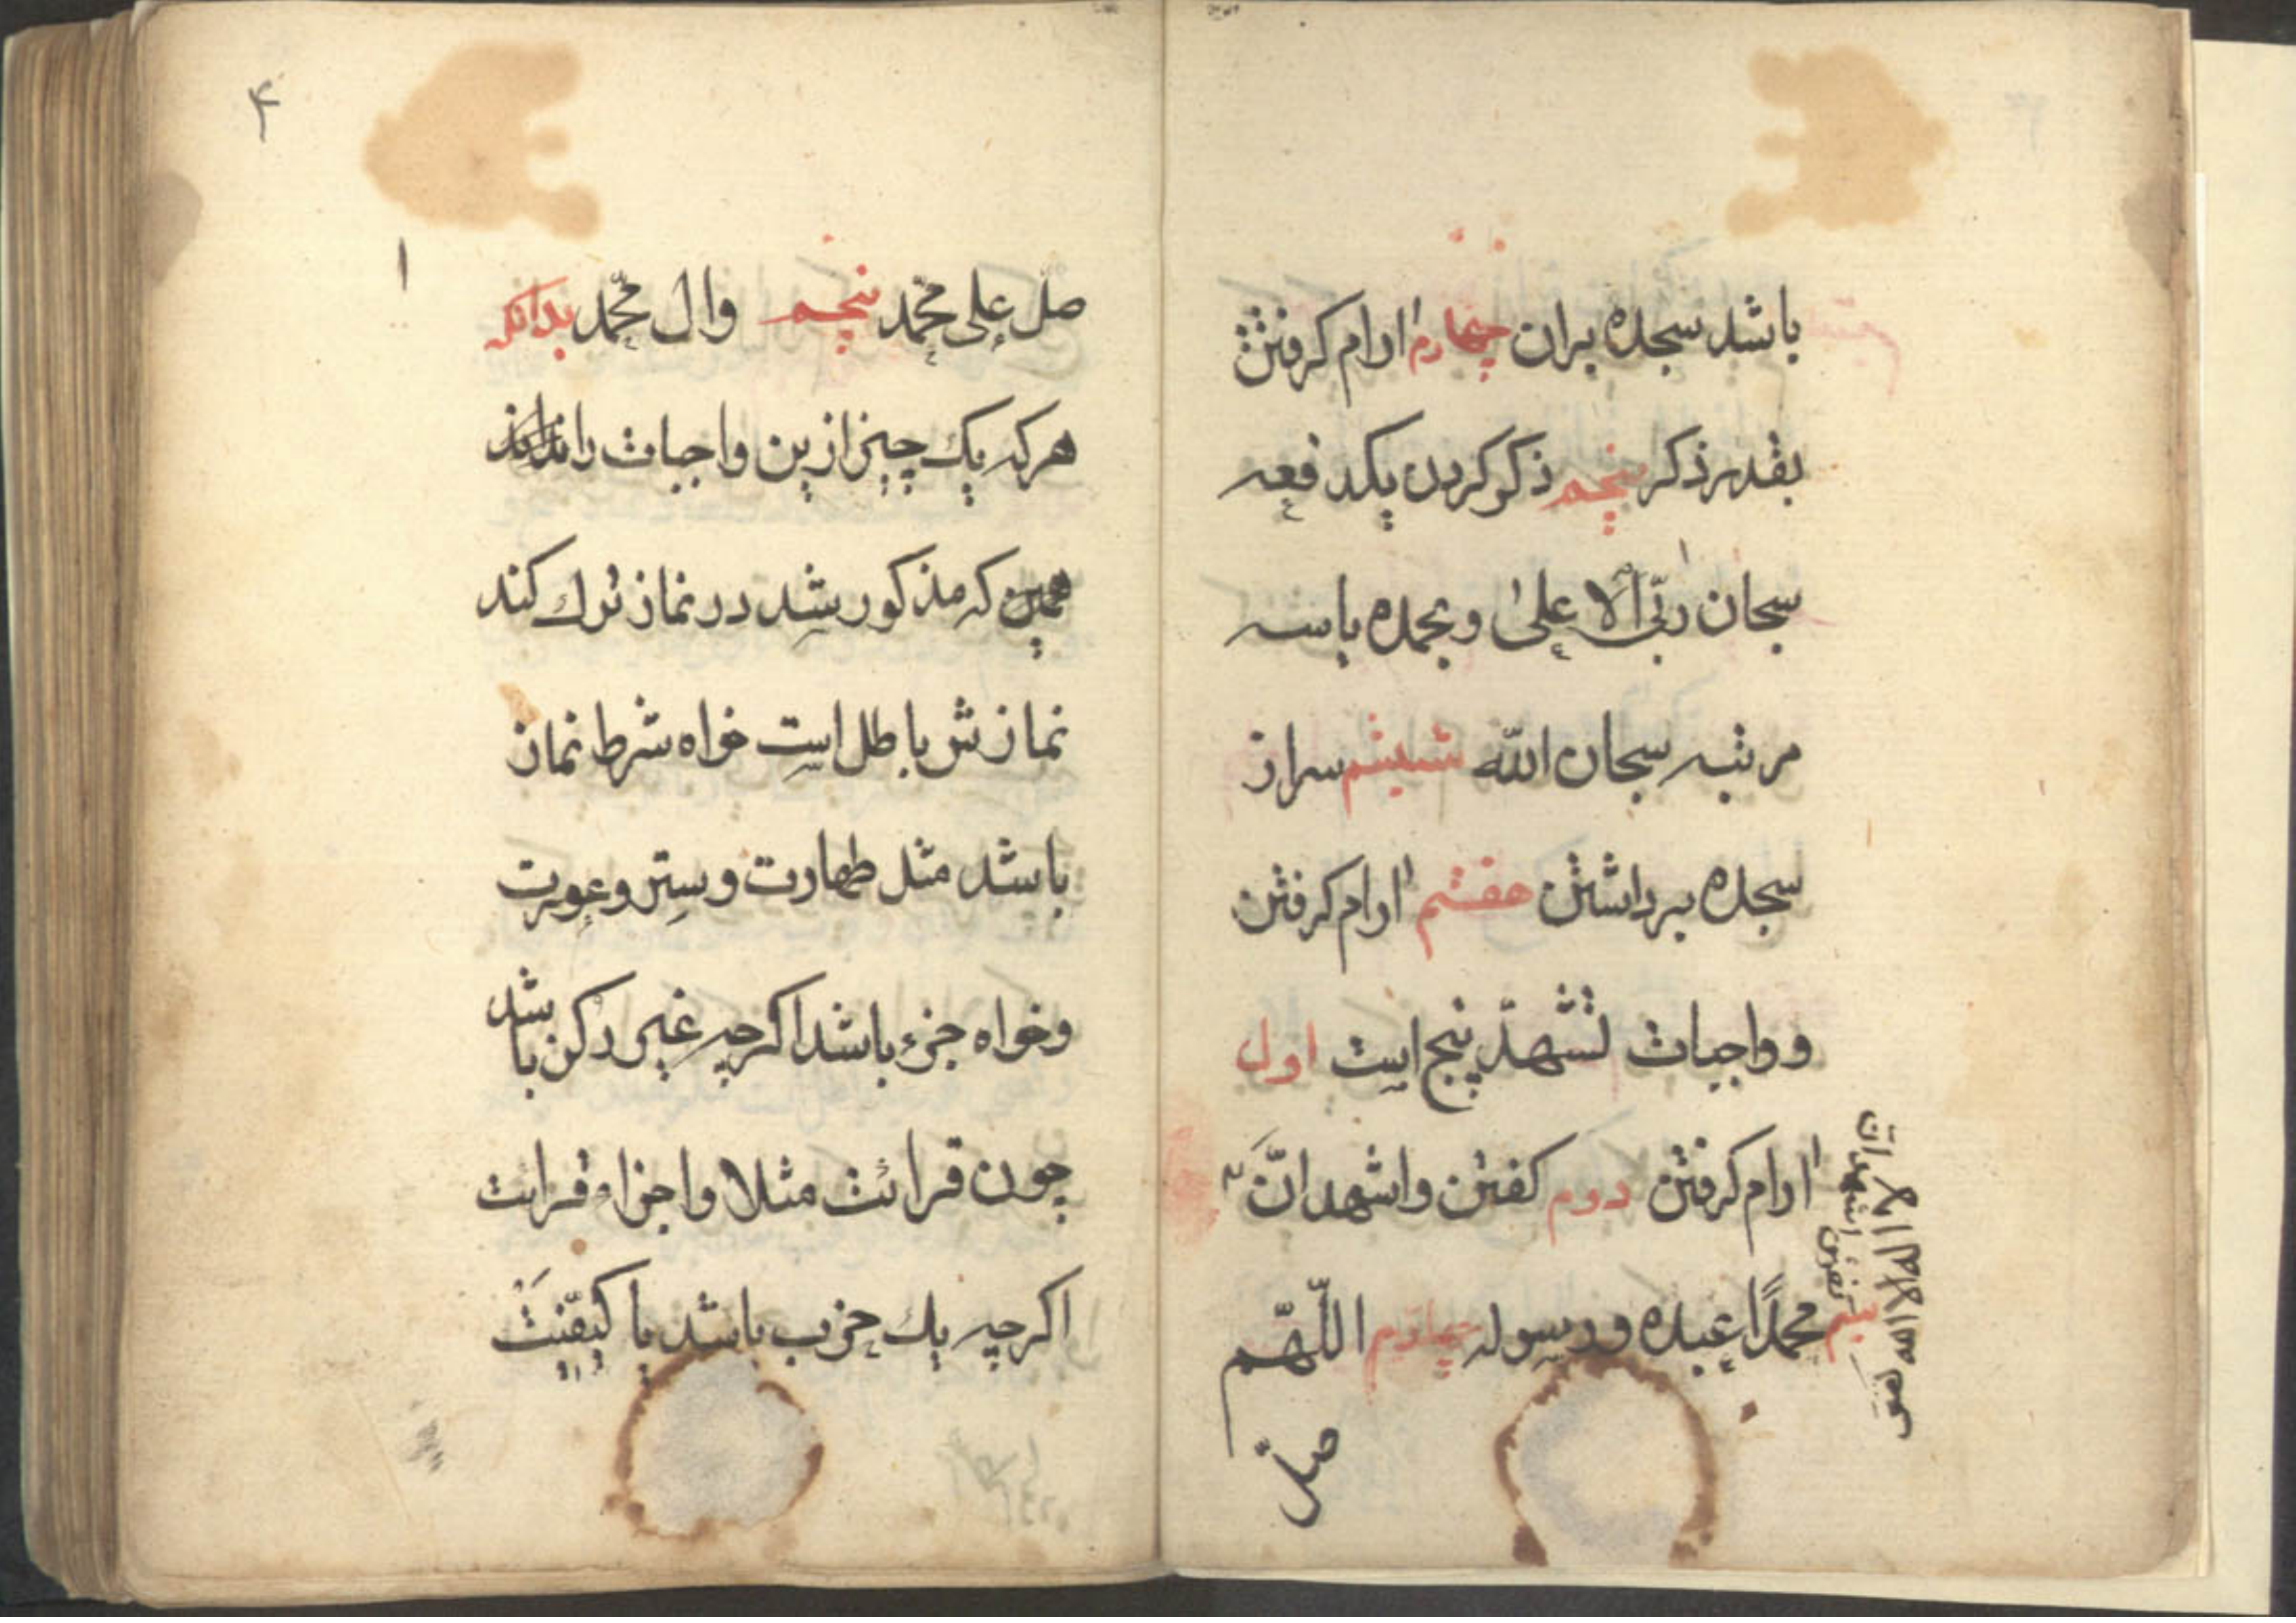 باشد سجده بران چهارم ارام کرفتن
بقدر ذکر پنجم ذکر کردن یکدفعه
سبحان ربّی الاعلیٰ و بحمده یا سه
مرتبه سبحان اللّه ششم سر از
سجده برداشتن هفتم ارام کرفتن
و واجبات تشهّد پنج است اول
ارام کرفتن دوم کفتن و اشهد انّ
محمدًا عبده و رسوله چهارم اللّهم
صلّ
کفتن اشهد ان
لا اله الا الله
۴
صلّ علی محمّد پنجم وال محمّد بدانکه
هرکه یک چیز ازین واجبات را
همین که مذکور شد در نماز ترک کند
نمازش باطل است خواه شرط نماز
باشد مثل طهارت و ستر و عورت
وخواه جزء باشد اکرچه غیر رکن باشد
چون قرائت مثلا واجزاء قرائت
اکرچه یک حرف باشد یا